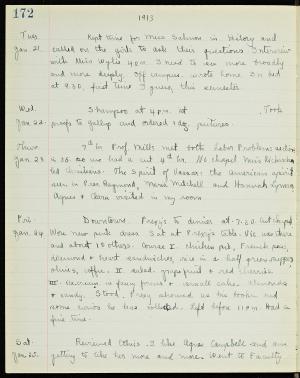 172
1913
Tues. Kept time for Miss Salmon in History and
Jan 21. called on the girls to ask their questions. Interview
with Miss Wylie 4 P.M. I need to see more broadly
and more deeply. Off campus. wrote home. In bed
at 9.30, first time, I guess, this semester.
Wed. Shampoo at 4 P.M. at Took
Jan 22. proofs to gallup and ordered 1 dz. pictures.
Thur. 7th hr. Prof. Mills met both Labor Problems section
Jan 23 so we had a cut 4th hr. At chapel Miss
led devotions. The Spirit of Vassar: the American spirit
seen in Pres. Raymond, Maria Mitchell and Hannah Lyman
Agnes & Clara visited in my room
Fri. Downtown. Prexy's to dinner at 7.30 but chapel
Jan 24. Wore new pink dress. Sat at Prexy's table. Vic was there
and about 15 others. Course I. chicken pie, French peas,
diamond & heart sandwiches, rice in a half green pepper,
olives, coffee. II salad. grapefruit & red cherries
III. ice cream in fancy forms & small cakes. Almonds
& candy. Stood. Prexy showed us the books and
some coins he has collected. Left before 11 P.M. Had a
fine time.
Sat. Reviewed Ethics. I like Agnes Campbell and am
Jan 25. getting to like her more and more. Went to Faculty